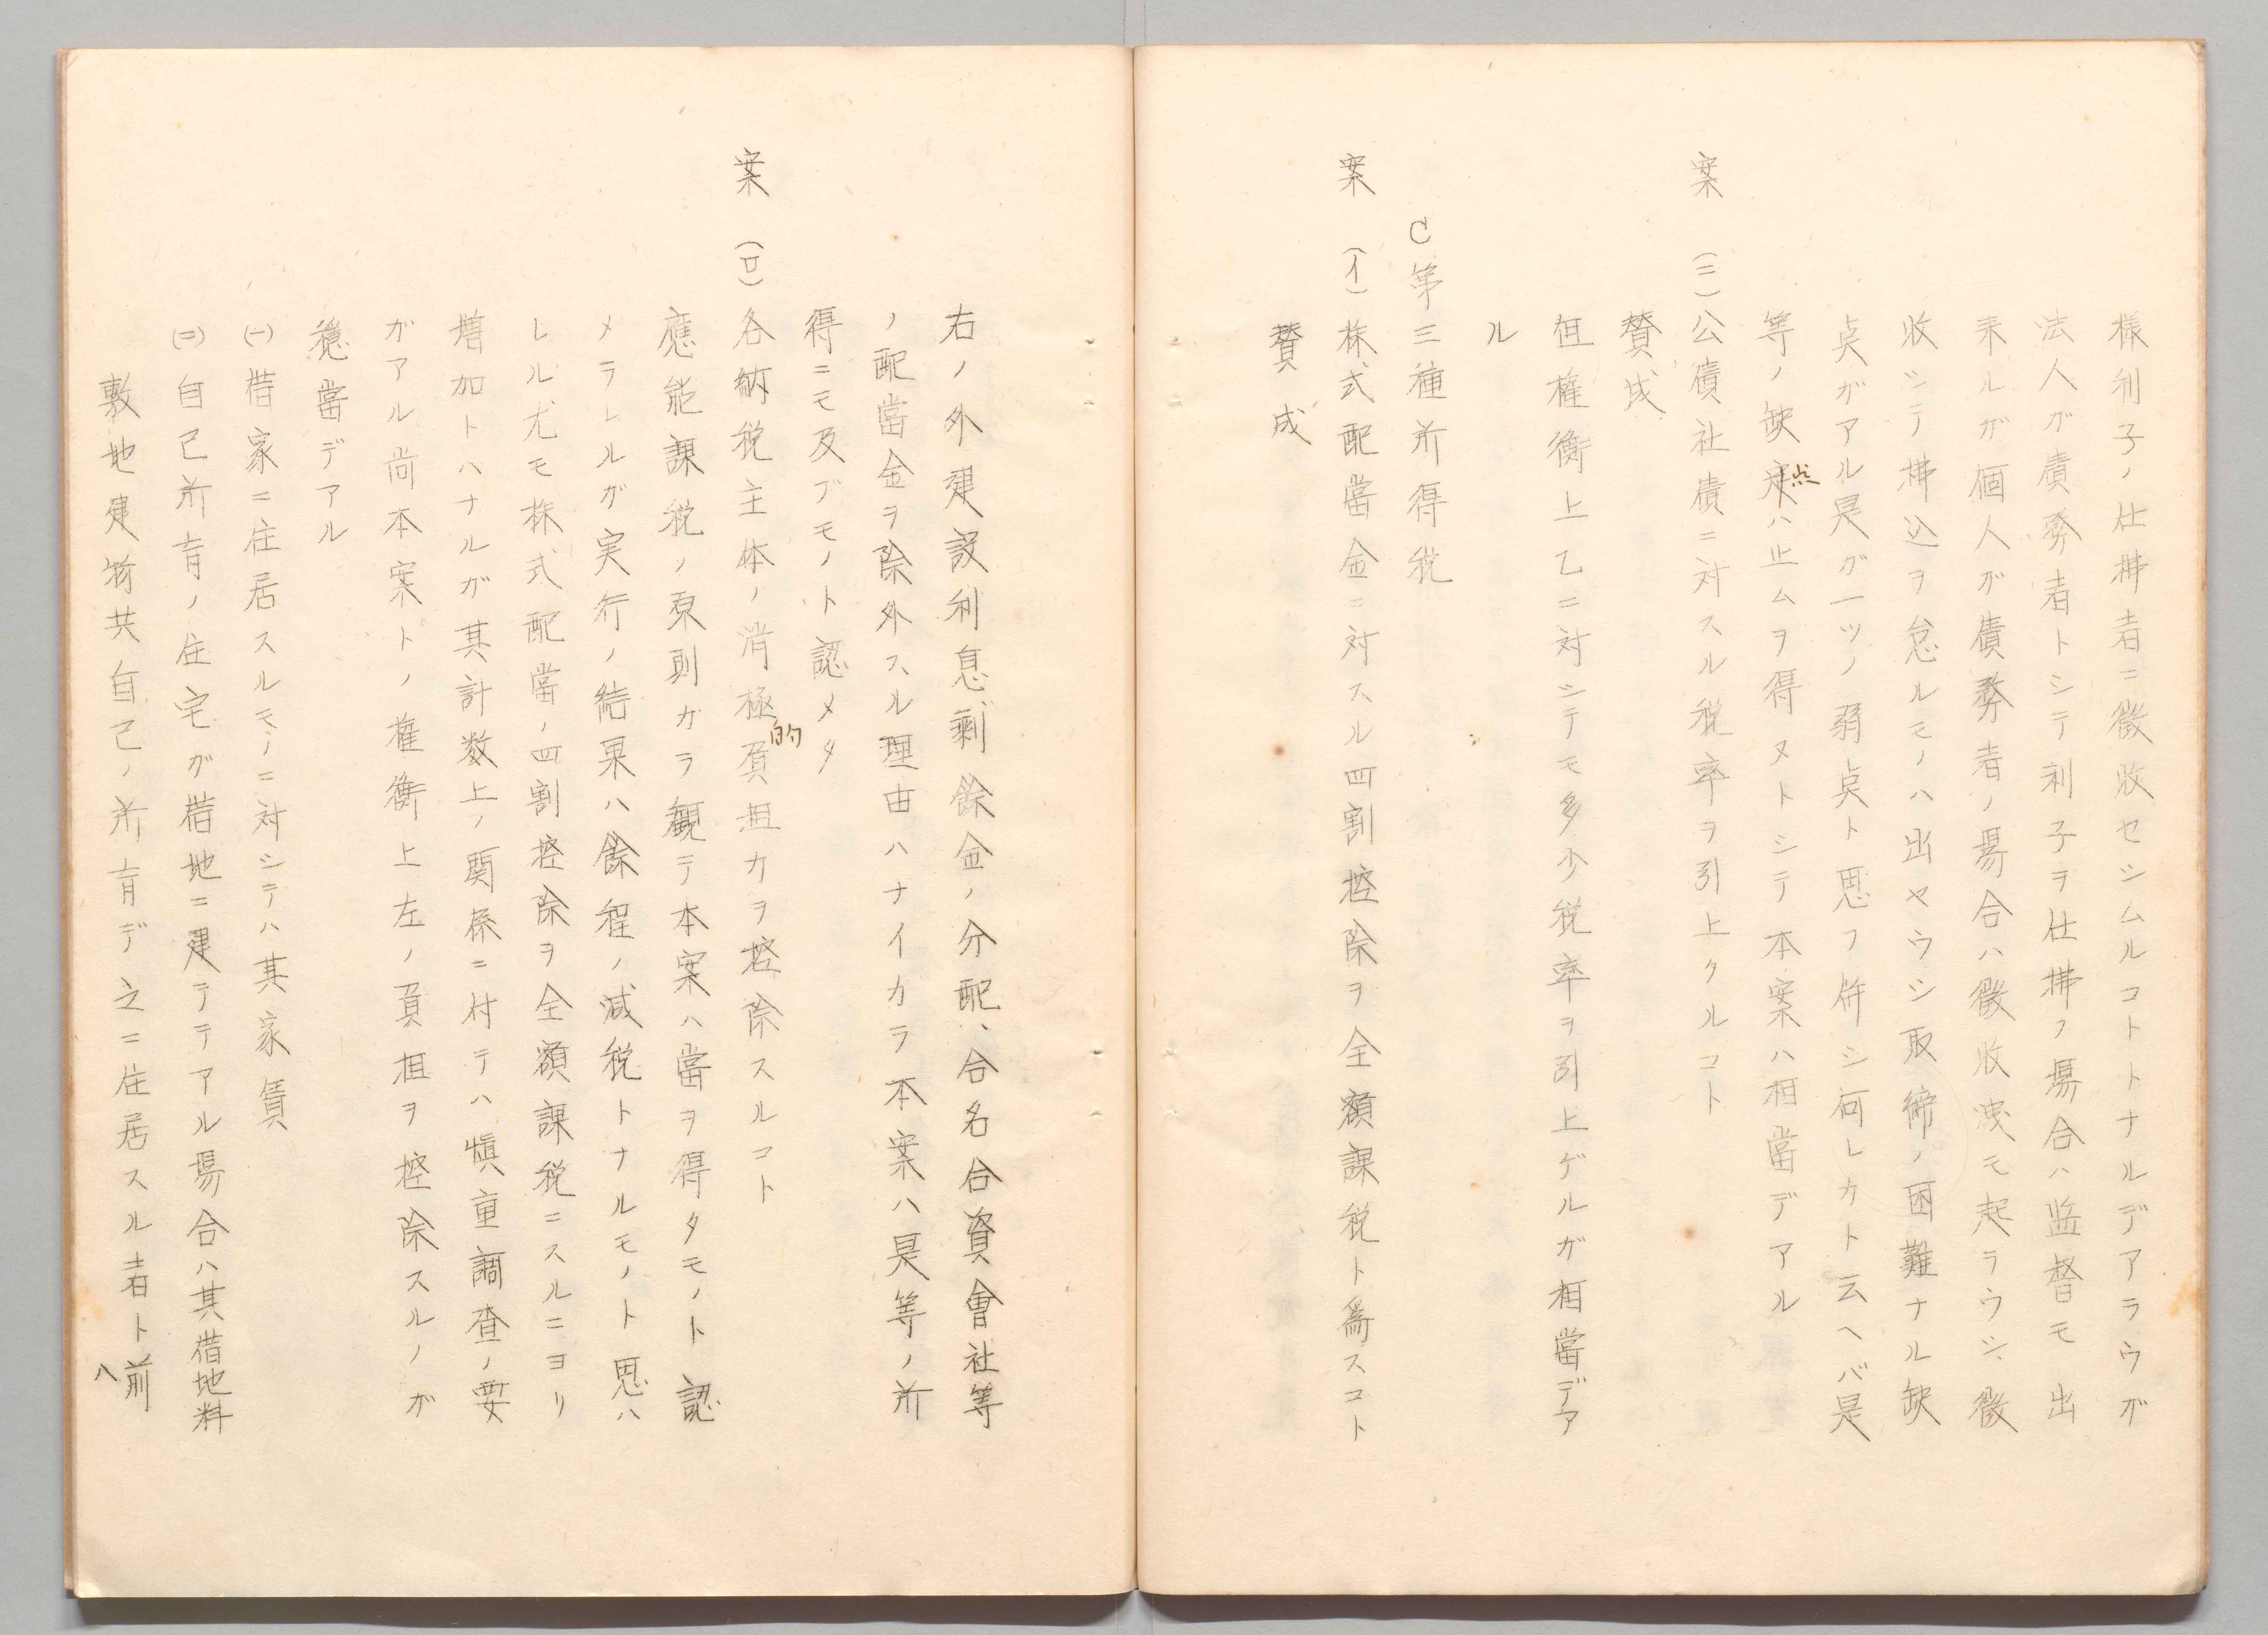 樣利子ノ仕拂者ニ徴收セシムルコトトナルデアラウガ
法人ガ債務者トシテ利子ヲ仕拂フ場合ハ監督モ出
来ルガ個人ガ債務者ノ場合ハ徴收洩モ起ラウシ、徴
收シテ拂込ヲ怠ルモノハ出ヤウシ取締ノ困難ナル缺
点ガアル是ガ一ツノ弱点ト思フ併シ何レカト云ヘバ是
等ノ缺点ハ止ムヲ得ヌトシテ本案ハ相當デアル
案 (ニ)公債社債ニ対スル税率ヲ引上クルコト
賛成
但權衡上乙ニ対シテモ多少税率ヲ引上ゲルガ相當デア
ル
C第三種所得税
案 (イ)株式配當金ニ対スル四割控除ヲ全額課税ト為スコト
賛成
右ノ外建設利息剰餘金ノ分配、合名合資會社等
ノ配當金ヲ除外スル理由ハナイカラ本案ハ是等ノ所
得ニモ及ブモノト認メタ
案 (ロ)各納税主体ノ消極的負担カヲ控除スルコト
應能課税ノ原則カラ観テ本案ハ當ヲ得タモノト認
メラレルガ実行ノ結果ハ餘程ノ減税トナルモノト思ハ
レル尤モ株式配當ノ四割控除ヲ全額課税ニスルニヨリ
増加トハナルガ其計数上ノ関係ニ付テハ慎重調査ノ要
ガアル尚本案トノ權衡上左ノ負担ヲ控除スルノガ
穏當デアル
(一)借家ニ住居スルモノニ対シテハ其家賃
(二)自己所有ノ住宅ガ借地ニ建テテアル場合ハ其借地料
敷地建物共自己ノ所有デ之ニ住居スル者ト前
八